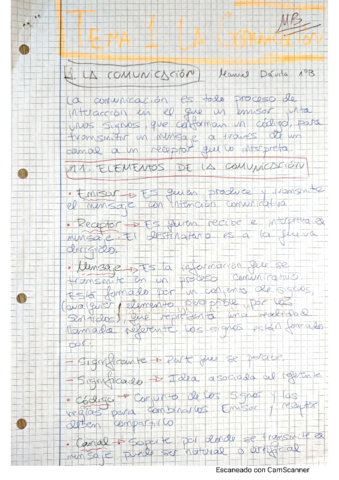 MB
TEMA 1 LA COMUNICACIÓN
1. LA COMUNICACIÓN Manuel 1ºB
La comunicación es todo proceso de
interacción en el que un emisor usa
unos signos, que conforman un código, para
transmitir un mensaje a través de un
canal a un receptor que lo interpreta
1.1. ELEMENTOS DE LA COMUNICACIÓN
• Emisor → Es quien produce y transmite
el mensaje con intención comunicativa
• Receptor → Es quien recibe e interpreta el
mensaje. El destinatario es a la que va
dirigido.
• Mensaje → Es la información que se
transmite en un proceso comunicativo
Está formado por un conjunto de signos,
(cualquier elemento, perceptible por los
sentidos), que representa una realidad
llamada referente los signos están formados
por:
- Significante → Parte que se percibe
- Significado → Idea asociada al referente
• Código → Conjunto de los signos y las
reglas para combinarlos Emisor y receptor
deben compartirlo
• Canal → Soporte por donde se transmite el
mensaje puede ser natural o artificial
Escaneado con CamScanner